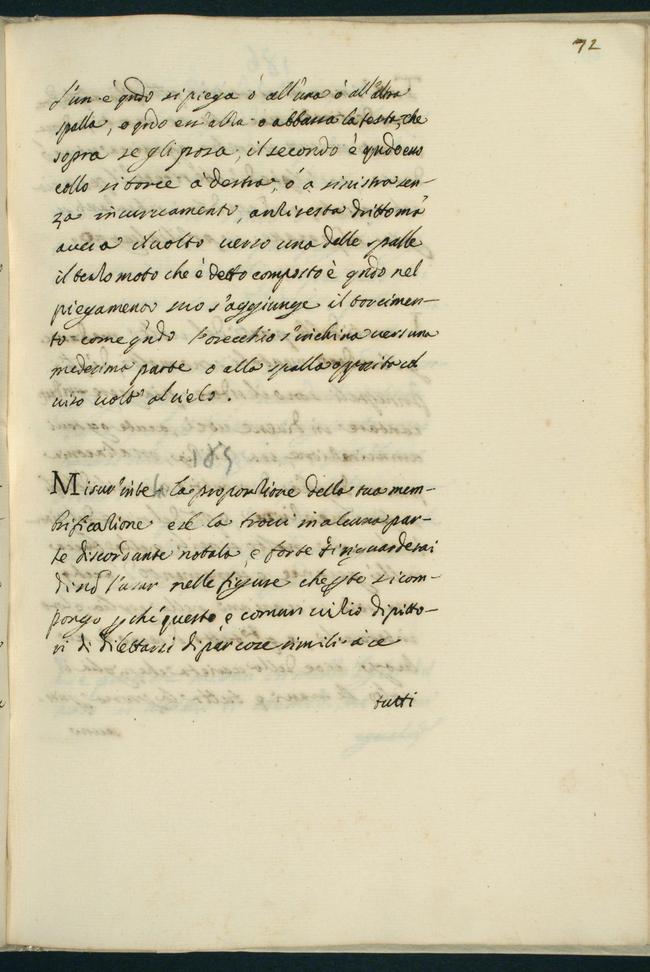 72
l'un è q̃ndo si piega ò all'una ò all'altra
spalla, o q̃ndo ess'alza o abbassa la testa, che
sopra se gli posa, il secondo è q̃ndo esso
collo si torce à destra, ò a sinistra sen-
za incuruamento, anzi resta dritto
il uolto uerso una delle spalle
il terzo moto che è detto composto è q̃ndo nel
piegamento suo s'aggiunge il torcimen-
to come q̃ndo l'orecchio s'inchina uers una
medesima parte o alla spalla opposita col
uiso uolto al cielo.
Misur' in te la proportione della tua mem-
brificatione e se la troui in alcuna par-
te discordante notala, e forte ti riguarderai
di nõ l'usar nelle figure che p̱ te si com-
pongo p̱ché questo è comun uitio di pitto-
ri di dilettarsi di far cose simili à se
tutti